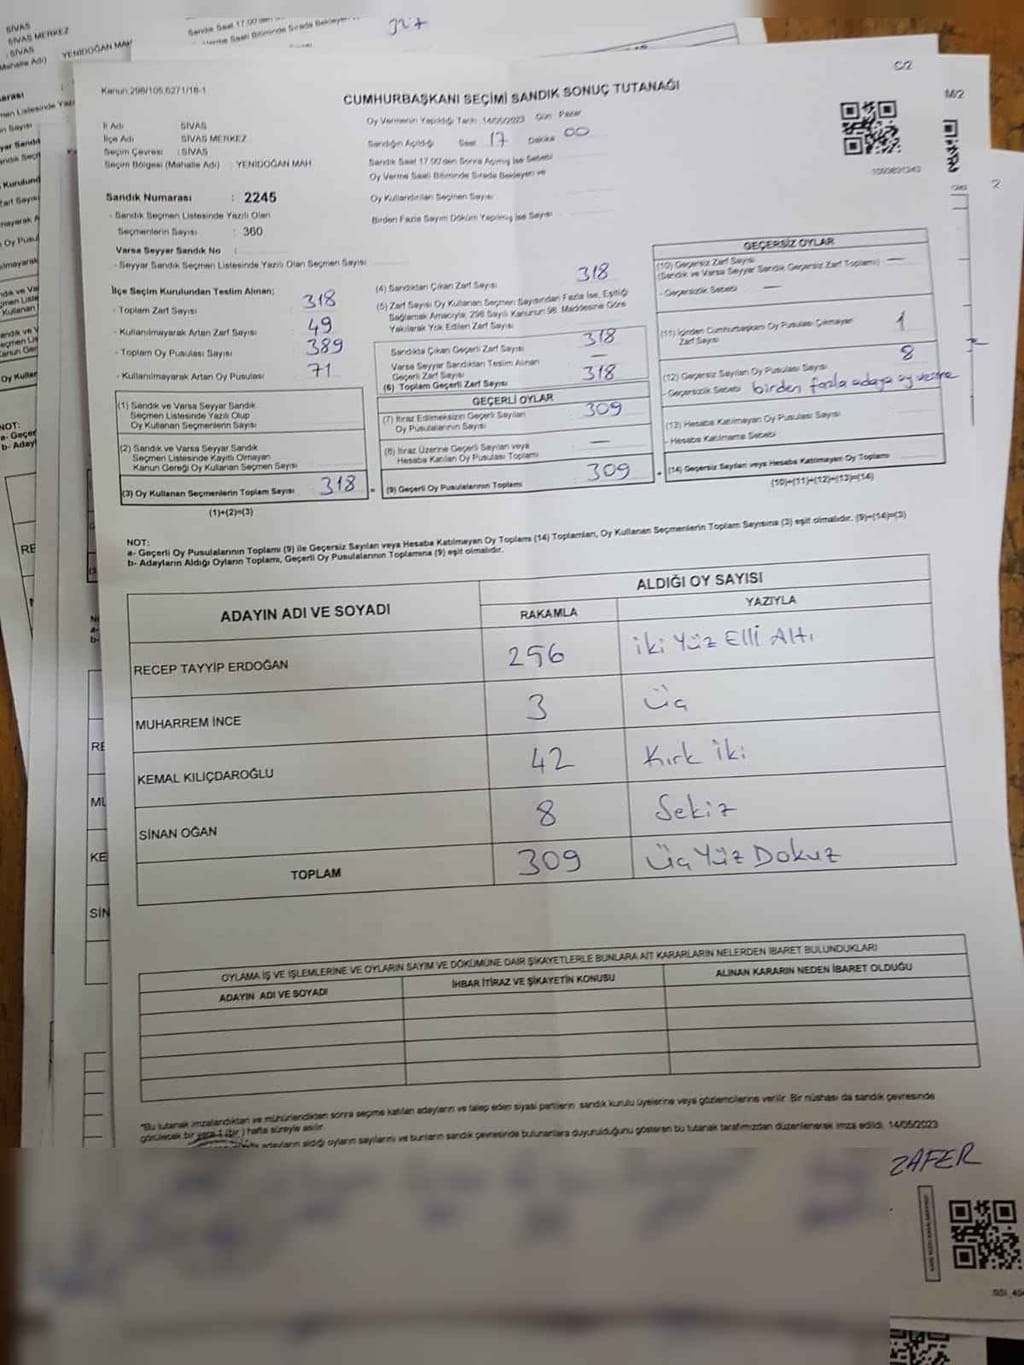 Kanun:298/105,6271/18-1
C/2
CUMHURBAŞKANI SEÇİMİ SANDIK SONUÇ TUTANAĞI
İl Adı SİVAS
İlçe Adı SİVAS MERKEZ
Seçim Çevresi : SİVAS
Seçim Bölgesi (Mahalle Adı) : YENIDOĞAN MAH
Oy Vermenin Yapıldığı Tarih : 14/05/2023 Gün : Pazar
Sandığın Açıldığı Saat 17 Dakika 00
Sandık Saat 17:00'den Sonra Açılmış İse Sebebi
Oy Verme Saati Bitiminde Sırada Bekleyen ve
Oy Kullandırılan Seçmen Sayısı
Birden Fazla Sayım Döküm Yapılmış İse Sayısı
Sandık Numarası : 2245
- Sandık Seçmen Listesinde Yazılı Olan
Seçmenlerin Sayısı : 360
Varsa Seyyar Sandık No :
- Seyyar Sandık Seçmen Listesinde Yazılı Olan Seçmen Sayısı
İlçe Seçim Kurulundan Teslim Alınan;
- Toplam Zarf Sayısı 318
- Kullanılmayarak Artan Zarf Sayısı 49
- Toplam Oy Pusulası Sayısı 389
- Kullanılmayarak Artan Oy Pusulası 71
(1) Sandık ve Varsa Seyyar Sandık
Seçmen Listesinde Yazılı Olup
Oy Kullanan Seçmenlerin Sayısı
(2) Sandık ve Varsa Seyyar Sandık
Seçmen Listesinde Kayıtlı Olmayan
Kanun Gereği Oy Kullanan Seçmen Sayısı
(3) Oy Kullanan Seçmenlerin Toplam Sayısı 318 =
(1)+(2)=(3)
(4) Sandıktan Çıkan Zarf Sayısı 318
(5) Zarf Sayısı Oy Kullanan Seçmen Sayısından Fazla İse, Eşitliği
Sağlamak Amacıyla, 298 Sayılı Kanunun 98. Maddesine Göre
Yakılarak Yok Edilen Zarf Sayısı
Sandıkta Çıkan Geçerli Zarf Sayısı 318
Varsa Seyyar Sandıktan Teslim Alınan
Geçerli Zarf Sayısı —
(6) Toplam Geçerli Zarf Sayısı 318
GEÇERLİ OYLAR
(7) İtiraz Edilmeksizin Geçerli Sayılan
Oy Pusulalarının Sayısı 309
(8) İtiraz Üzerine Geçerli Sayılan veya
Hesaba Katılan Oy Pusulası Toplamı —
(9) Geçerli Oy Pusulalarının Toplamı 309 +
GEÇERSİZ OYLAR
(10) Geçersiz Zarf Sayısı
(Sandık ve Varsa Seyyar Sandık Geçersiz Zarf Toplamı) —
- Geçersizlik Sebebi —
(11) İçinden Cumhurbaşkanı Oy Pusulası Çıkmayan
Zarf Sayısı 1
(12) Geçersiz Sayılan Oy Pusulası Sayısı 8
- Geçersizlik Sebebi birden fazla adaya oy verme
(13) Hesaba Katılmayan Oy Pusulası Sayısı
- Hesaba Katılmama Sebebi
(14) Geçersiz Sayılan veya Hesaba Katılmayan Oy Toplamı
(10)+(11)+(12)+(13)=(14)
NOT:
a- Geçerli Oy Pusulalarının Toplamı (9) ile Geçersiz Sayılan veya Hesaba Katılmayan Oy Toplamı (14) Toplamları, Oy Kullanan Seçmenlerin Toplam Sayısına (3) eşit olmalıdır. (9)+(14)=(3)
b- Adayların Aldığı Oyların Toplamı, Geçerli Oy Pusulalarının Toplamına (9) eşit olmalıdır.
ADAYIN ADI VE SOYADI
ALDIĞI OY SAYISI
RAKAMLA YAZIYLA
RECEP TAYYİP ERDOĞAN 256 iki Yüz Elli Altı
MUHARREM İNCE 3 Üç
KEMAL KILIÇDAROĞLU 42 Kırk iki
SİNAN OĞAN 8 Sekiz
TOPLAM 309 Üç Yüz Dokuz
OYLAMA İŞ VE İŞLEMLERİNE VE OYLARIN SAYIM VE DÖKÜMÜNE DAİR ŞİKAYETLERLE BUNLARA AİT KARARLARIN NELERDEN İBARET BULUNDUKLARI
ADAYIN ADI VE SOYADI İHBAR İTİRAZ VE ŞİKAYETİN KONUSU ALINAN KARARIN NEDEN İBARET OLDUĞU
"Bu tutanak imzalandıktan ve mühürlendikten sonra seçime katılan adayların ve talep eden siyasi partilerin sandık kurulu üyelerine veya gözlemcilerine verilir. Bir nüshası da sandık çevresinde
görülecek bir yere 1 (bir) hafta süreyle asılır.
adayların aldığı oyların sayılarını ve bunların sandık çevresinde bulunanlara duyurulduğunu gösteren bu tutanak tarafımızdan düzenlenerek imza edildi. 14/05/2023
ZAFER